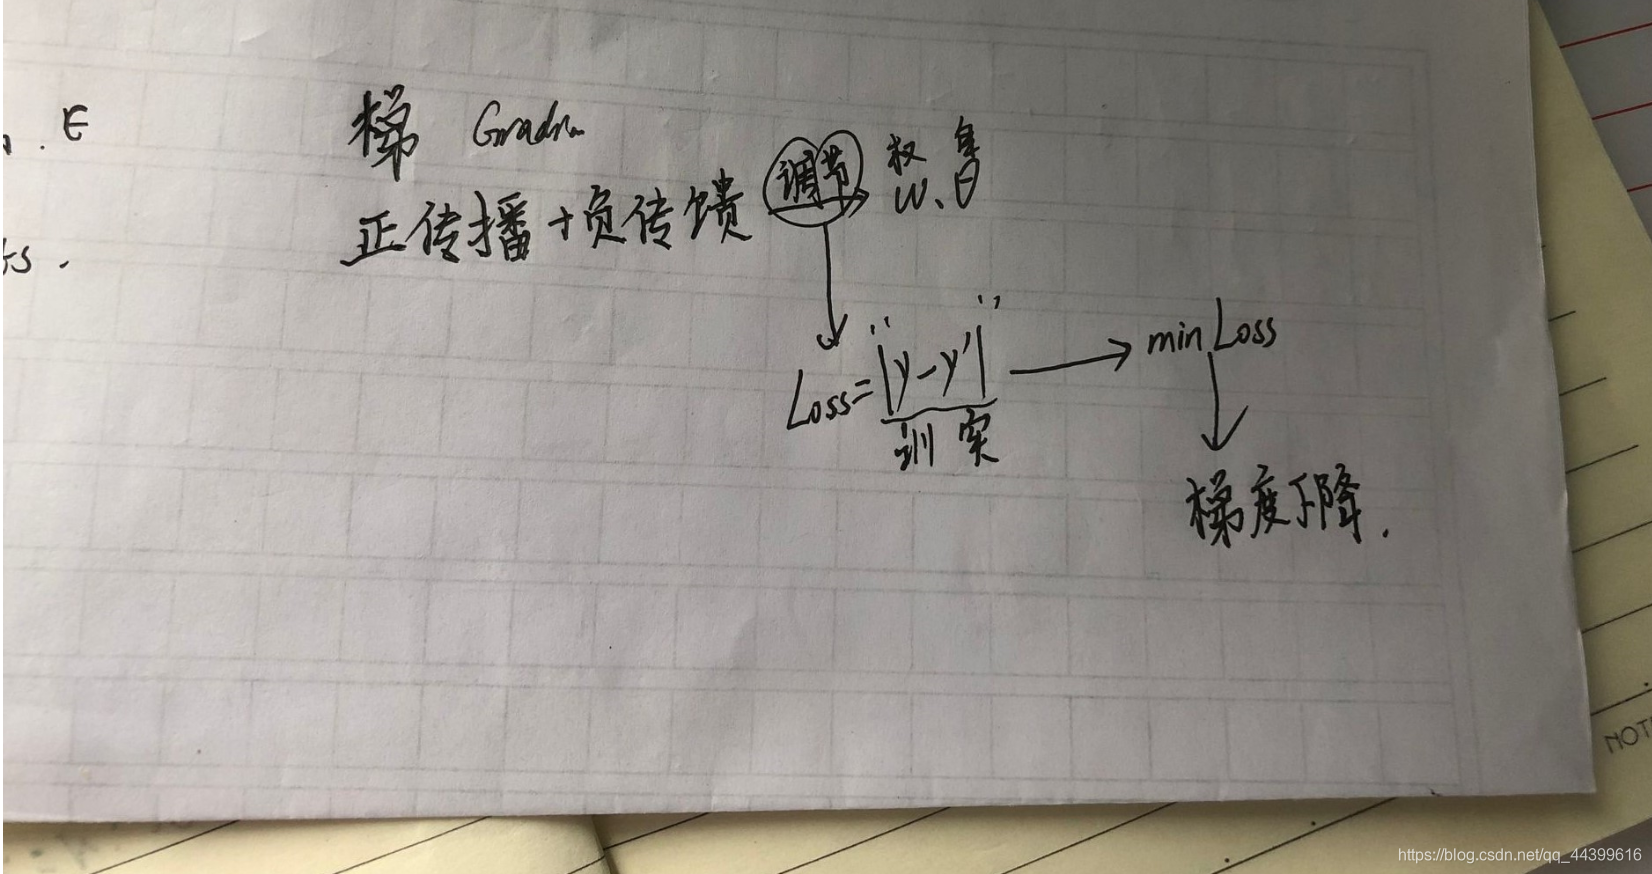 E
梯
正传播+负传馈 调节 权
W、θ
ts.
Loss=|y-y'|
训 实
min Loss
梯度下降.
NOT
https://blog.csdn.net/qq_44399616